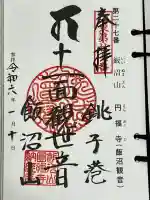 第二十七番 飯沼山 円福寺(飯沼観音)
奉拝
銚子巻
十一面観世音
飯沼山
令和六年一月十日